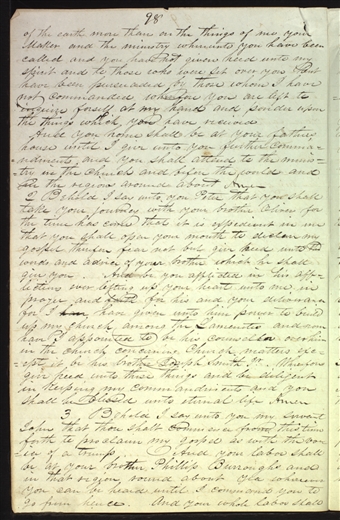 98
of the earth more than on the things of me your
Maker and the ministry whereunto you have been
called and you have not given heed unto my
spirit and to those who were set over you But
have been persuaded by those whom I have
not commanded wherefore you are left to
enquire for yourself at my hand and ponder upon
the things which you have received
And you home shall be at your fathers
house until I give unto you further comma-
ndments, and you shall attend to the minis-
try in the Church and before the world and
in the regions around about Amen
2 Behold I say unto you Peter that you shall
take your journey with your brother Oliver for
the time has come that it is expedient in me
that you shall open your mouth to declare my
gospel therefore fear not but give heed unto the
words and advice of your brother which he shall
give you. And be you afflicted in his aff-
lictions ever lifting up your heart unto me in
prayer and faith for his and your deliverance
for I have given unto him power to build
up my Church among the Lamanites and none
have I appointed to be his counsellor over him
in the Church concerning Church matters exc-
ept it is his brother Joseph Smith Jr. Wherefore
give heed unto these things and be diligent
in keeping my commandments and you
shall be blessed unto eternal life Amen
3. Behold I say unto you my servant
that thou shalt commence from this time
forth to proclaim my gospel as with the vo-
ice of a trump. And your labor shall
be at your brother Phillip Burroughs and
in that region round about yea wherever
you can be heard until I command you to
go from hence. And your whole labor shall